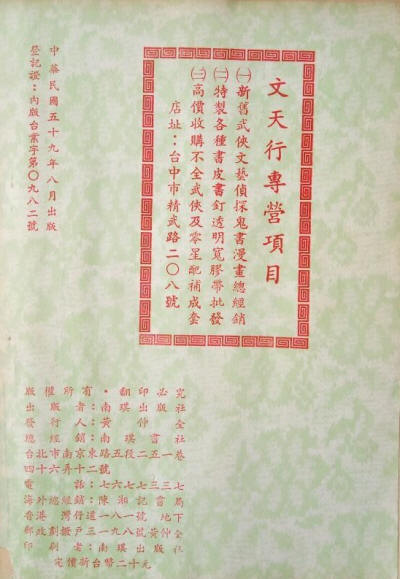 文天行專營項目
㈠新舊武俠文藝偵探鬼書漫畫總經銷
㈡特製各種書皮書釘透明寬膠帶批發
㈢高價收購不全武俠及零星配補成套
店址：台中市精武路二〇八號
中華民國五十九年八月出版
登記證：內版台業字第〇九八二號
版權所有・翻印必究
出版者：南琪出版社
發行人：黃仲全
總經銷：南琪書社
台北市南京東路五段二五一巷
四十六弄十二號
電話：七六七七三三七
海外總經銷：陳湘記書局
香港灣仔道一八一號地下
郵政劃撥戶三一九八號黃仲全
印刷者：南琪出版社
定價新台幣二十元